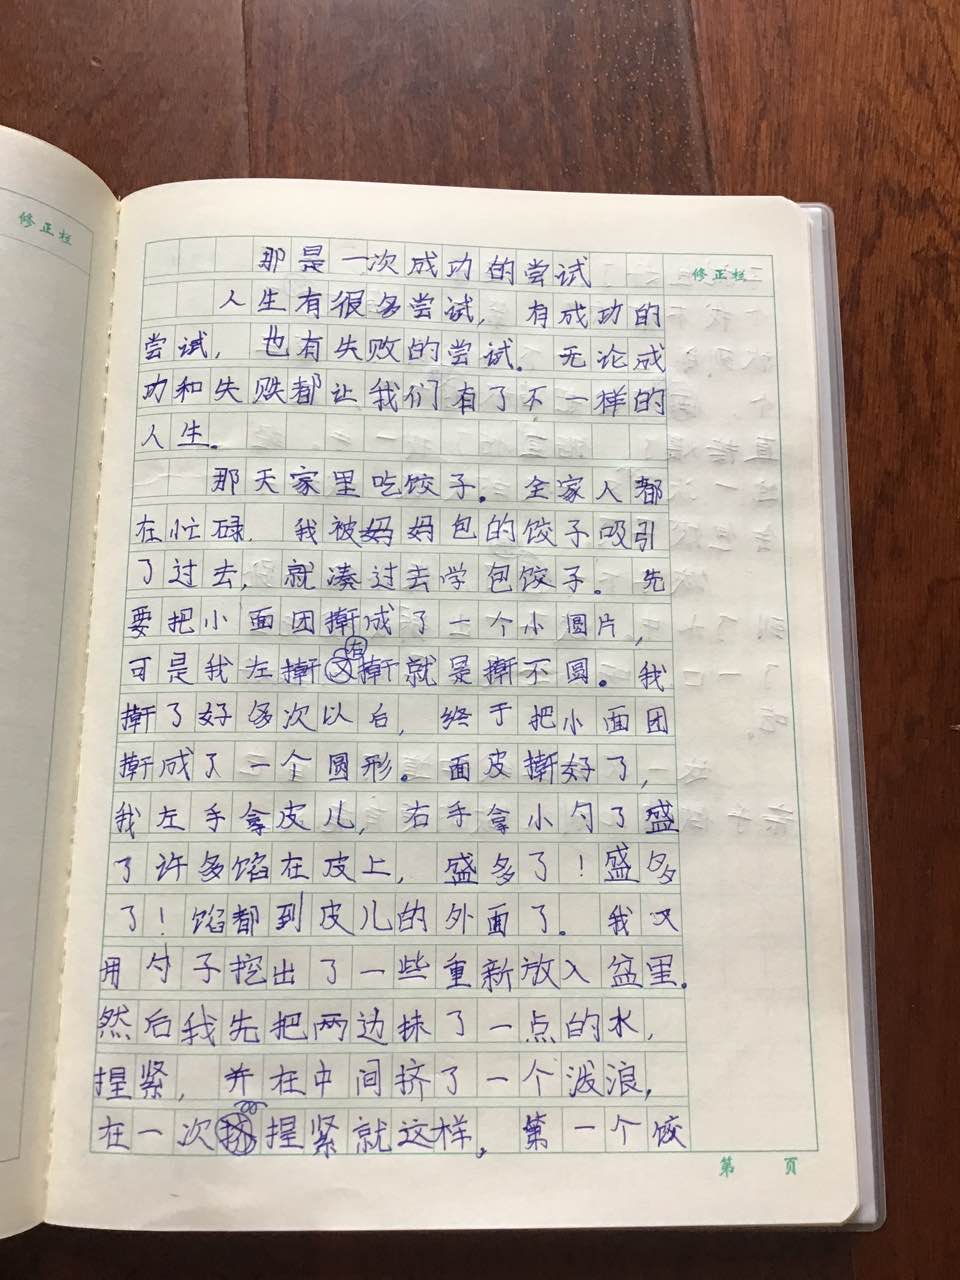 修正栏
修正栏
那是一次成功的尝试
人生有很多尝试，有成功的
尝试，也有失败的尝试。无论成
功和失败都让我们有了不一样的
人生。
那天家里吃饺子。全家人都
在忙碌.我被妈妈包的饺子吸引
了过去，就凑过去学包饺子。先
要把小面团擀成了一个小圆片，
可是我左擀右擀就是擀不圆。我
擀了好多次以后，终于把小面团
擀成了一个圆形。面皮擀好了，
我左手拿皮儿，右手拿小勺了盛
了许多馅在皮上，盛多了！盛多
了！馅都到皮儿的外面了。我又
用勺子挖出了一些重新放入盆里.
然后我先把两边抹了一点的水，
捏紧，并在中间挤了一个波浪，
在一次捏紧就这样，第一个饺
第 页